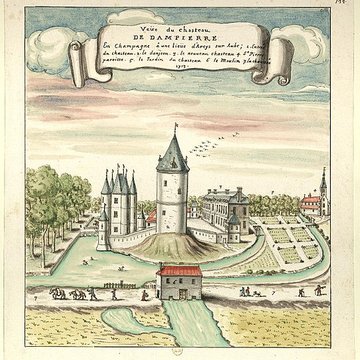 Veüe du chasteau
DE DAMPIERRE
En Champagne à une lieüe d'Arcys sur Aube; 1.
du chasteau. 2. le donjon. 3. le nouveau chasteau 4.
paroisse. 5. le Jardin du chasteau 6. le Moulin